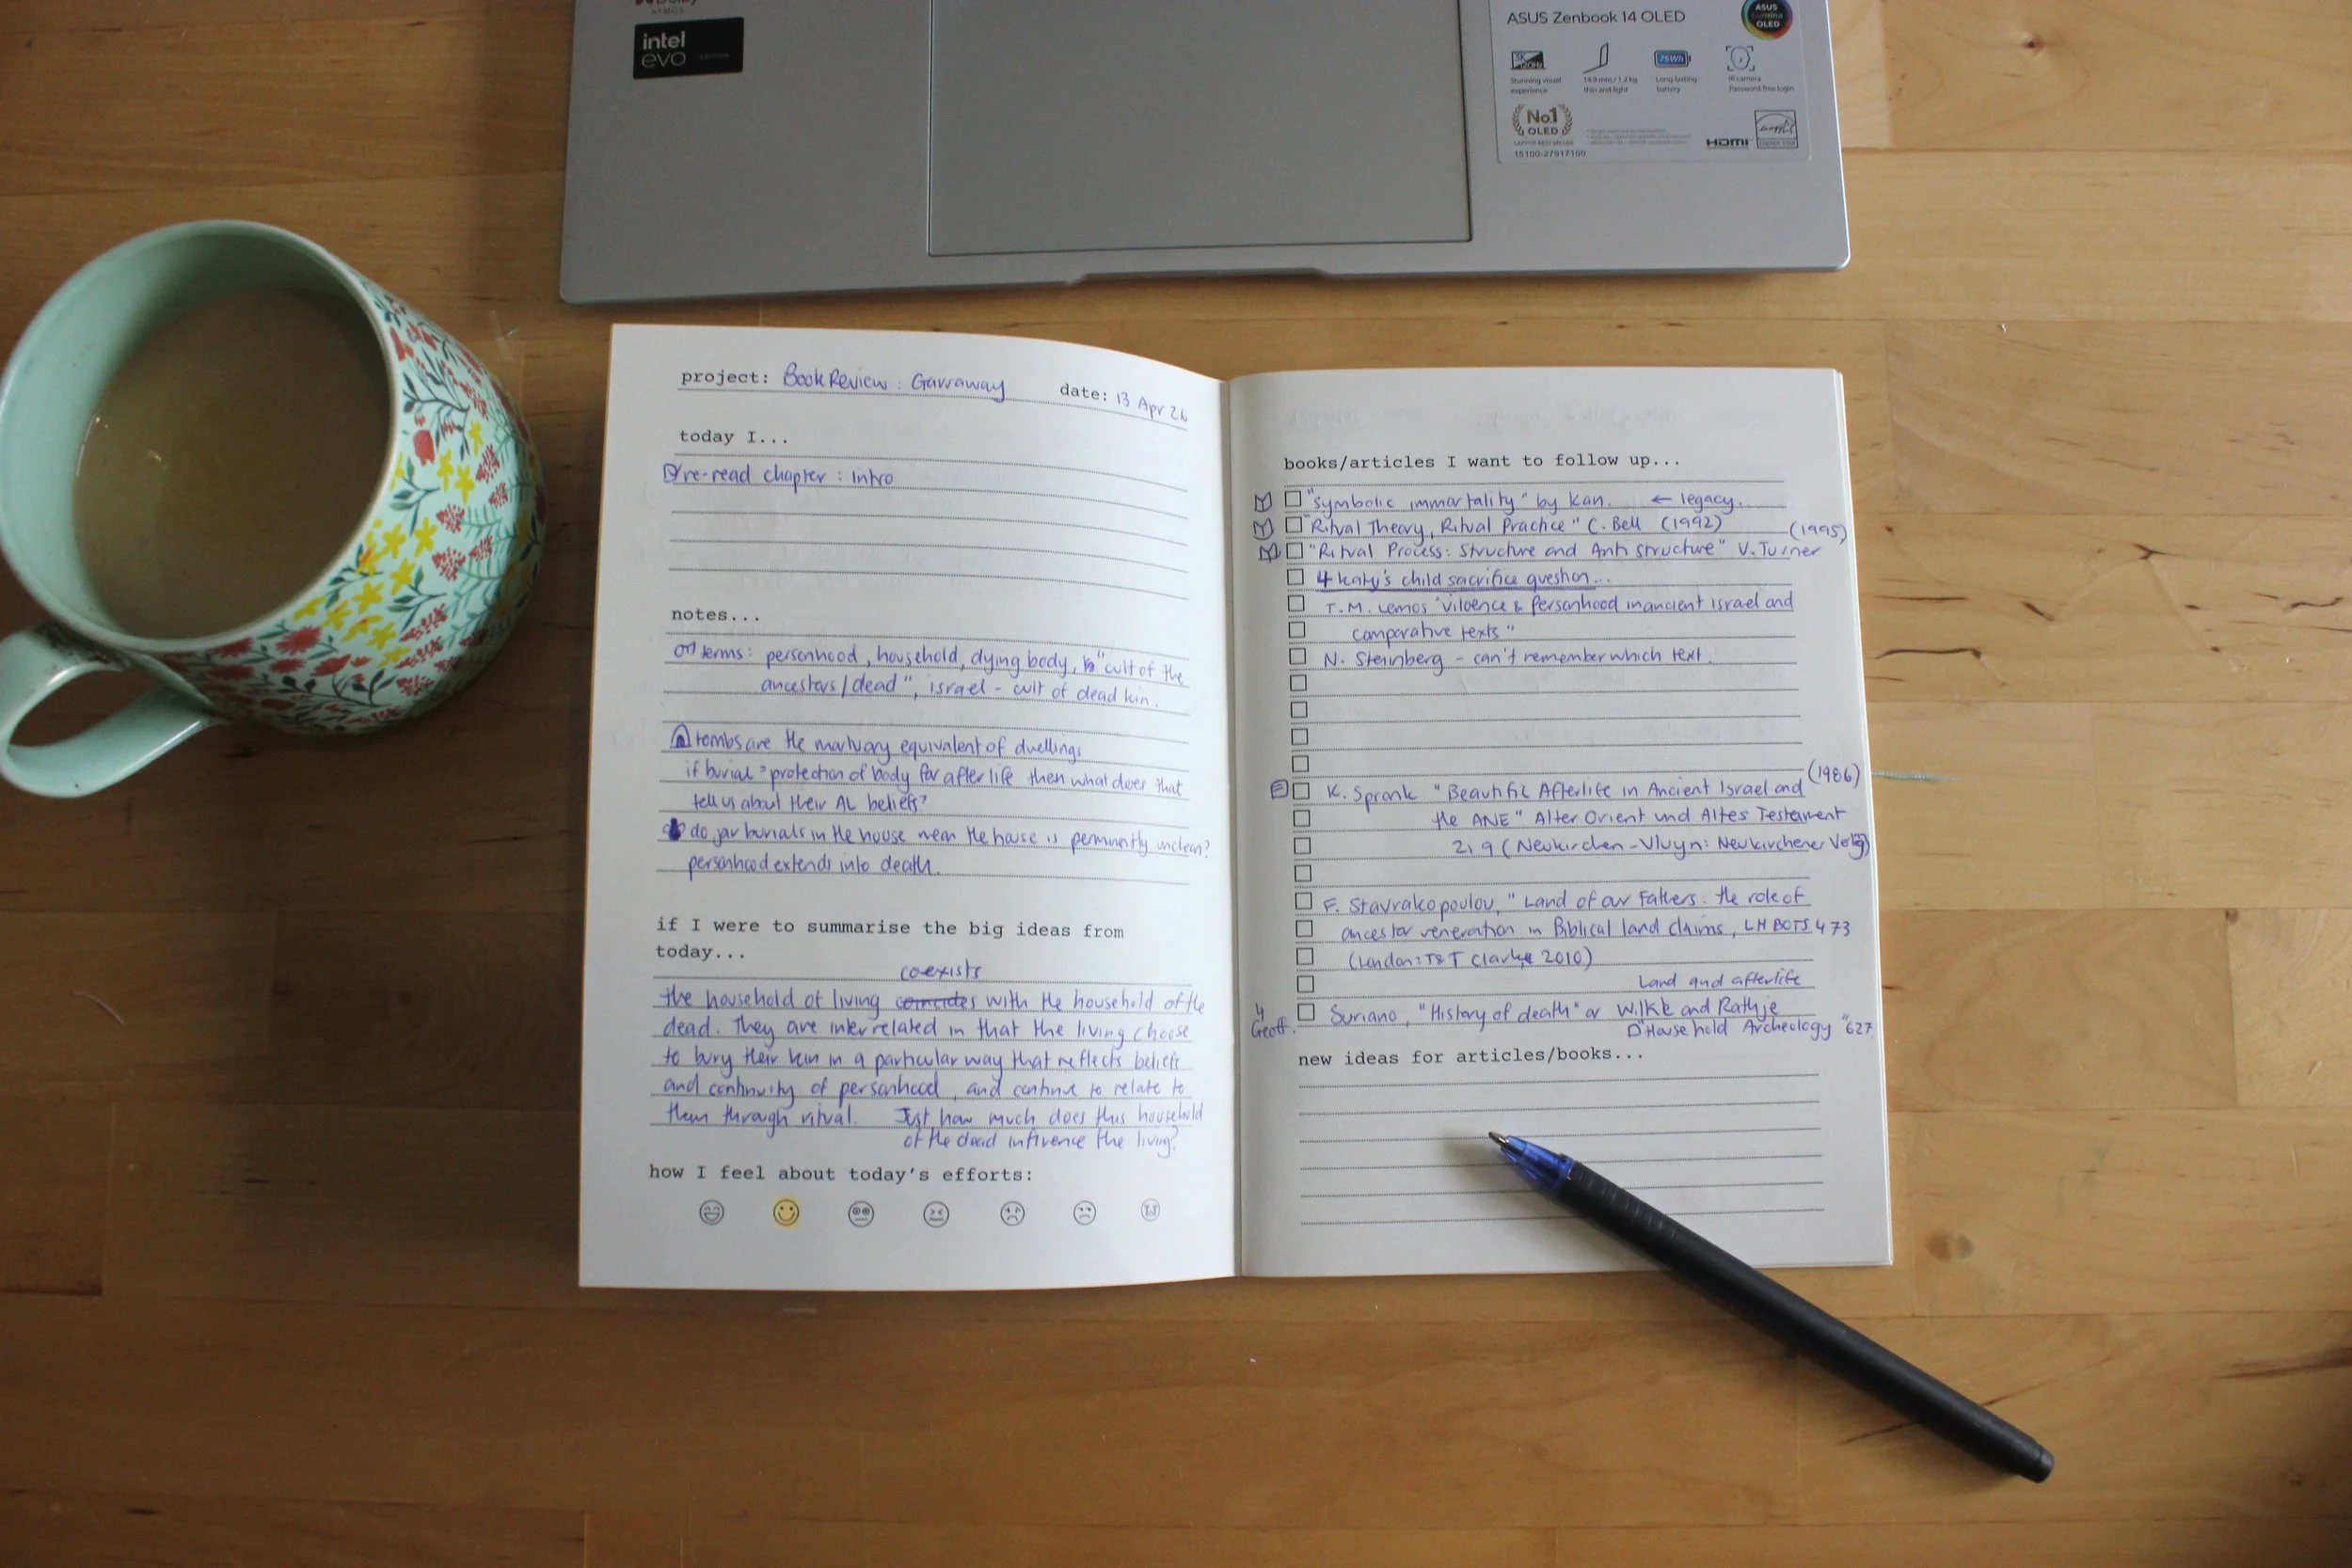 Dolby
ATMOS
intel
evo
EDITION
ASUS Zenbook 14 OLED
ASUS
Lumina
OLED
Stunning visual
experience
14.9 mm / 1.2 kg
thin and light
75Wh
Long lasting
battery
IR camera
Password-free login
No.1
OLED
15100-27917100
HDMI
ENERGY STAR
project: Book Review : Garraway
date: 13 Apr 26
today I...
re-read chapter : Intro
notes...
terms: personhood, household, dying body, "cult of the
ancestors/dead", israel - cult of dead kin.
tombs are the mortuary equivalent of dwellings
if burial = protection of body for after life then what does that
tell us about their AL beliefs?
do jar burials in the house mean the house is permenantly unclean?
personhood extends into death.
if I were to summarise the big ideas from
today...
coexists
the household of living coincides with the household of the
dead. They are interrelated in that the living choose
to bury their kin in a particular way that reflects beliefs
and continuity of personhood, and continue to relate to
them through ritual. Just how much does this household
of the dead influence the living?
how I feel about today's efforts:
books/articles I want to follow up...
"Symbolic immortality" by Kan. ← legacy.
"Ritual Theory, Ritual Practice" C. Bell (1992)
(1995)
"Ritual Process: Structure and Anti structure" V. Turner
4 Katy's child sacrifice question...
T.M. Lemos "Viloence & Personhood in ancient Israel and
comparative texts"
N. Steinberg - can't remember which text.
(1986)
K. Spronk "Beautific Afterlife in Ancient Israel and
the ANE" Alter Orient und Altes Testament
219 (Neukirchen-Vluyn: Neukirchener Verlag)
F. Stavrakopoulou, "Land of our Fathers: the role of
ancestor veneration in Biblical land claims, LHBOTS 473
(London: T&T Clark 2010)
Land and afterlife
4
Geoff.
Suriano, "History of death" or Wilkie and Rathje
"Household Archeology" 627
new ideas for articles/books...